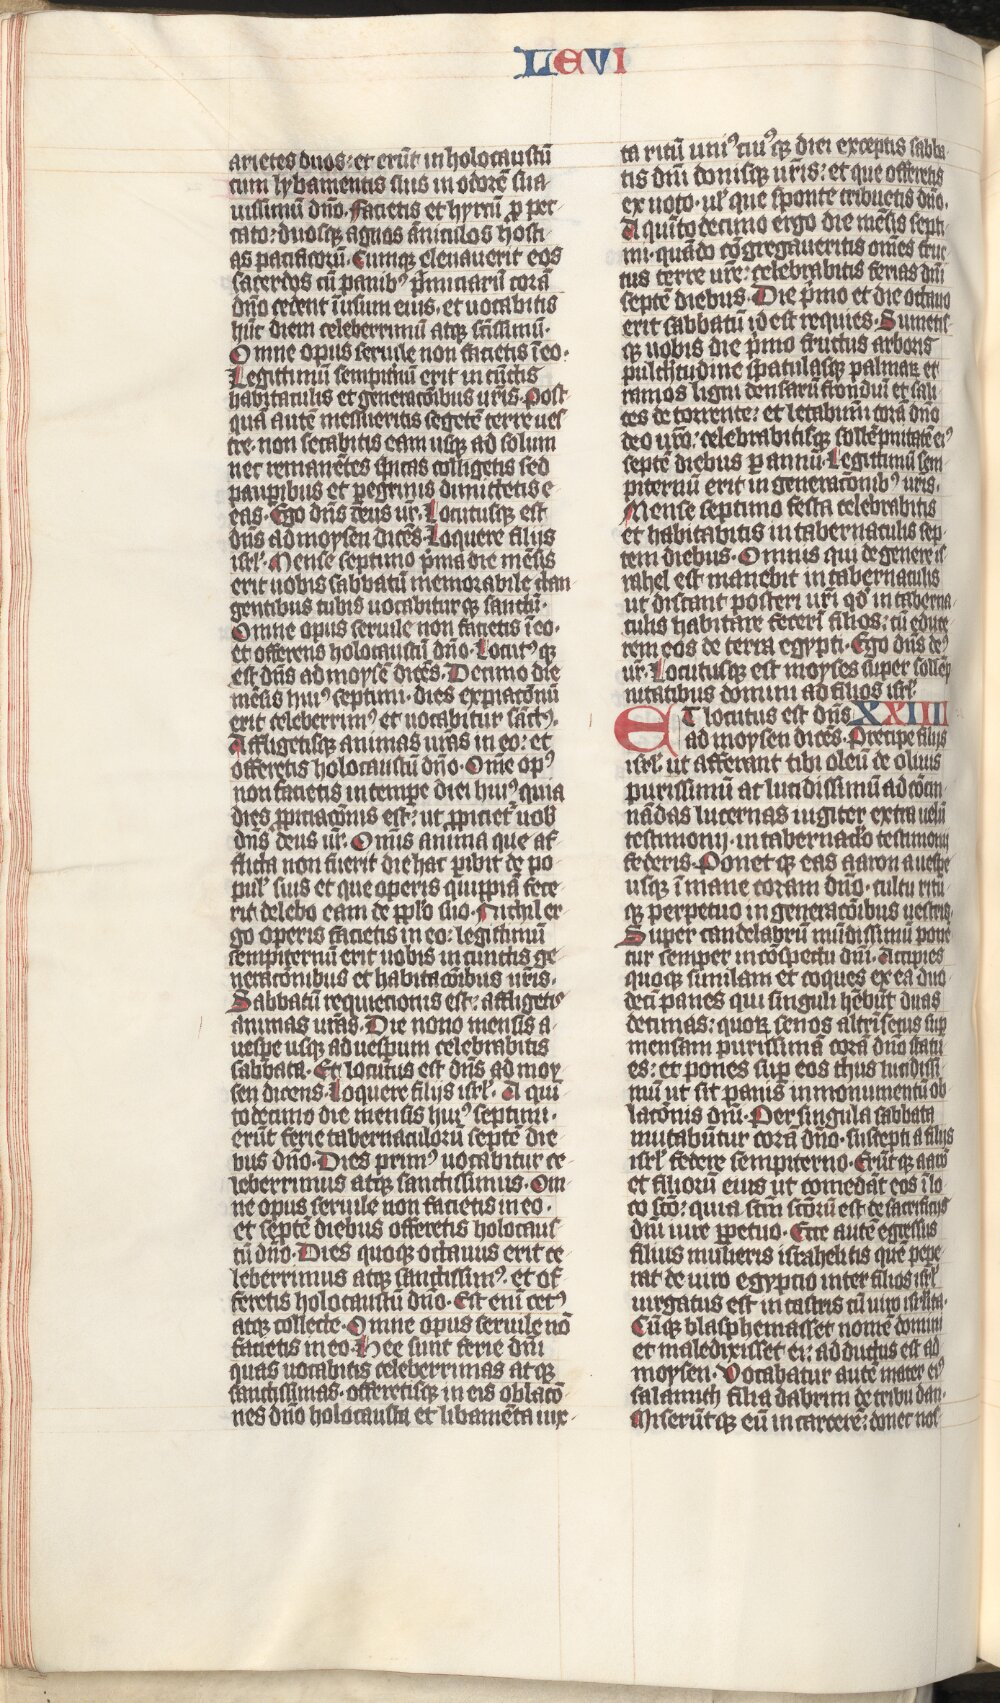 LEVI
arietes duos: et erūt in holocaustū
cum lybamentis suis in odorē sua
uissimū dño. Facietis et hyrcū ꝓ pec
cato: duosqꝫ agnos āniculos hosti
as pacificorū. Cumqꝫ eleuauerit eos
sacerdos cū panibꝰ pͥmiciarū corā
dño cedent ī usum eius. et uocabitis
hūc diem celeberrimū atqꝫ scīssimū.
Omne opus seruile non facietis ī eo.
Legittimū sempitnū erit in cūctis
habitaculis et generacōibus uīris. Post
quā autē messueritis segetē terre ues
tre. non secabitis eam usqꝫ ad solum
nec remanētes spicas colligetis sed
paupibus et pegrinis dimittetis e
eas. Ego dñs deus ur̄. Locutusqꝫ est
dñs ad moysen dicēs. Loquere filijs
isrl̄. Mense septimo pͥma die mēsis
erit uobis sabbatū memorabile clan
gentibus tubis uocabiturqꝫ sanctū.
Omne opus seruile non facietis ī eo.
et offeretis holocaustū dño. Locutꝰqꝫ
est dñs ad moysē dicēs. Decimo die
mēsis huiꝰ septimi. dies expiacōnū
erit celeberrimꝰ et uocabitur sāctꝰ.
Affligetisqꝫ animas ur̄as in eo: et
offeretis holocaustū dño. Om̄e opꝰ
non facietis in tempe diei huiꝰ quia
dies ꝓpiciacōnis est: ut ꝓpiciet̄ uob
dñs deus ur̄. Om̄is anima que af
flicta non fuerit die hac pibit de po
pul̄ suis et que operis quippiā fece
rit delebo eam de ꝓpl̄o suo. Nichil er
go operis facietis in eo: legittimū
sempiternū erit uobis in cunctis ge
neracōnibus et habitacōibus ur̄is.
Sabbatū requiecionis est: affligetꝭ
animas ur̄as. Die nono mensis a
uespe usqꝫ ad uespum celebrabitis
sabbata. Et locutus est dñs ad moy
sen dicens. Loquere filijs isrl̄. A qui
todecimo die mensis huiꝰ septimi.
erūt ferie tabernaculorū septē die
bus dño. Dies primꝰ uocabitur ce
leberrimus atqꝫ sanctissimus. Om
ne opus seruile non facietis in eo.
et septē diebus offeretis holocaus
tū dño. Dies quoqꝫ octauus erit ce
leberrimus atqꝫ sanctissimꝰ. et of
feretis holocaustū dño. Est enī cetꝰ
atqꝫ collecte. Omne opus seruile nō
facietis in eo. Hee sunt ferie dn̄i
quas uocabitis celeberrimas atqꝫ
sanctissimas. offeretisqꝫ in eis oblacō
nes dño holocausta et libamēta iux
ta ritū uniꝰcuiꝰqꝫ diei exceptis sabba
tis dn̄i donisqꝫ ur̄is: et que offeretis
ex uoto. ul̄ que sponte tribuetis dño.
A quītodecimo ergo die mēsis septi
mi. quādo cōgregaueritis om̄es fruc
tus terre ur̄e: celebrabitis ferias dn̄i
septē diebus. Die pͥmo et die octauo
erit sabbatū id est requies. Sumetis
qꝫ uobis die pͥmo fructus arboris
pulchitudine spatulasqꝫ palmaꝝ et
ramos ligni densarū frondiū et sali
ces de torrente: et letabimī corā dño
deo ur̄o: celebrabitisqꝫ sollēpnitatē eiꝰ
septē diebus p annū. Legittimū sem
piternū erit in generacōnibꝰ ur̄is.
Mense septimo festa celebrabitis
et habitabitis in tabernaculis sep
tem diebus. Omnis qui de genere is
rahel est manebit in tabernaculis
ut discant posteri ur̄i qd̄ in taberna
culis habitare fecerī filios: cū educe
rem eos de terra egypti. Ego dñs deꝰ
ur̄. Locutusqꝫ est moyses super sollēp
nitatibus domini ad filios isrl̄.
ET locutus est dñs XXIIII
ad moysen dicēs. Precipe filijs
isrl̄. ut afferant tibi oleū de oliuis
purissimū ac lucidissimū ad cōcin
nādas lucernas iugiter extra uelū
testimonij. in tabernac̄lo testimonij
federis. Ponetqꝫ eas aaron a uespe
usqꝫ ī mane coram dño. cultu ritu
qꝫ perpetuo in generacōibus uestris.
Super candelabrū mūdissimū pone
tur semper in cōspectu dn̄i. Accipies
quoqꝫ similam et coques ex ea duo
decī panes qui singuli hēbūt duas
decimas: quoꝝ senos altrīsecus sup
mensam purissimā corā dño statu
es: et pones sup eos thus lucidissi
mū ut sit panis in monumentū ob
lacōnis dn̄i. Per singula sabbata
mutabūtur corā dño. suscepti a filijs
isrl̄ federe sempiterno. Erūtqꝫ aarō
et filiorū eius ut comedāt eos ī lo
co scō: quia scm̄ scōrū est de sacrificijs
dn̄i iure ꝑpetuo. Ecce autē egressus
filius mulieris israhelitis quē pepe
rat de uiro egyptio inter filios isrl̄
iurgatus est in castris cū uiro isrl̄ita.
Cūqꝫ blasphemasset nomē domini
et maledixisset ei: adductus est ad
moysen. Vocabatur autē mater eiꝰ
salamith filia dabrim de tribu dan.
Miserūtqꝫ eū in carcerē: donec nos